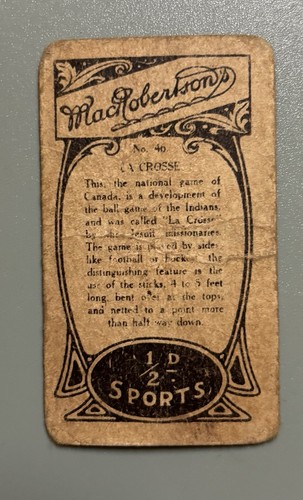 MacRobertson's
No. 46
LA CROSSE
This, the national game of
Canada, is a development of
the ball game of the Indians,
and was called "La Crosse"
by missionaries.
The game is played by sides
like football or hockey, the
distinguishing feature is the
use of the sticks, 4 to 5 feet
long, bent at the tops,
and netted to a point more
than half way down.
1/2 D
SPORTS